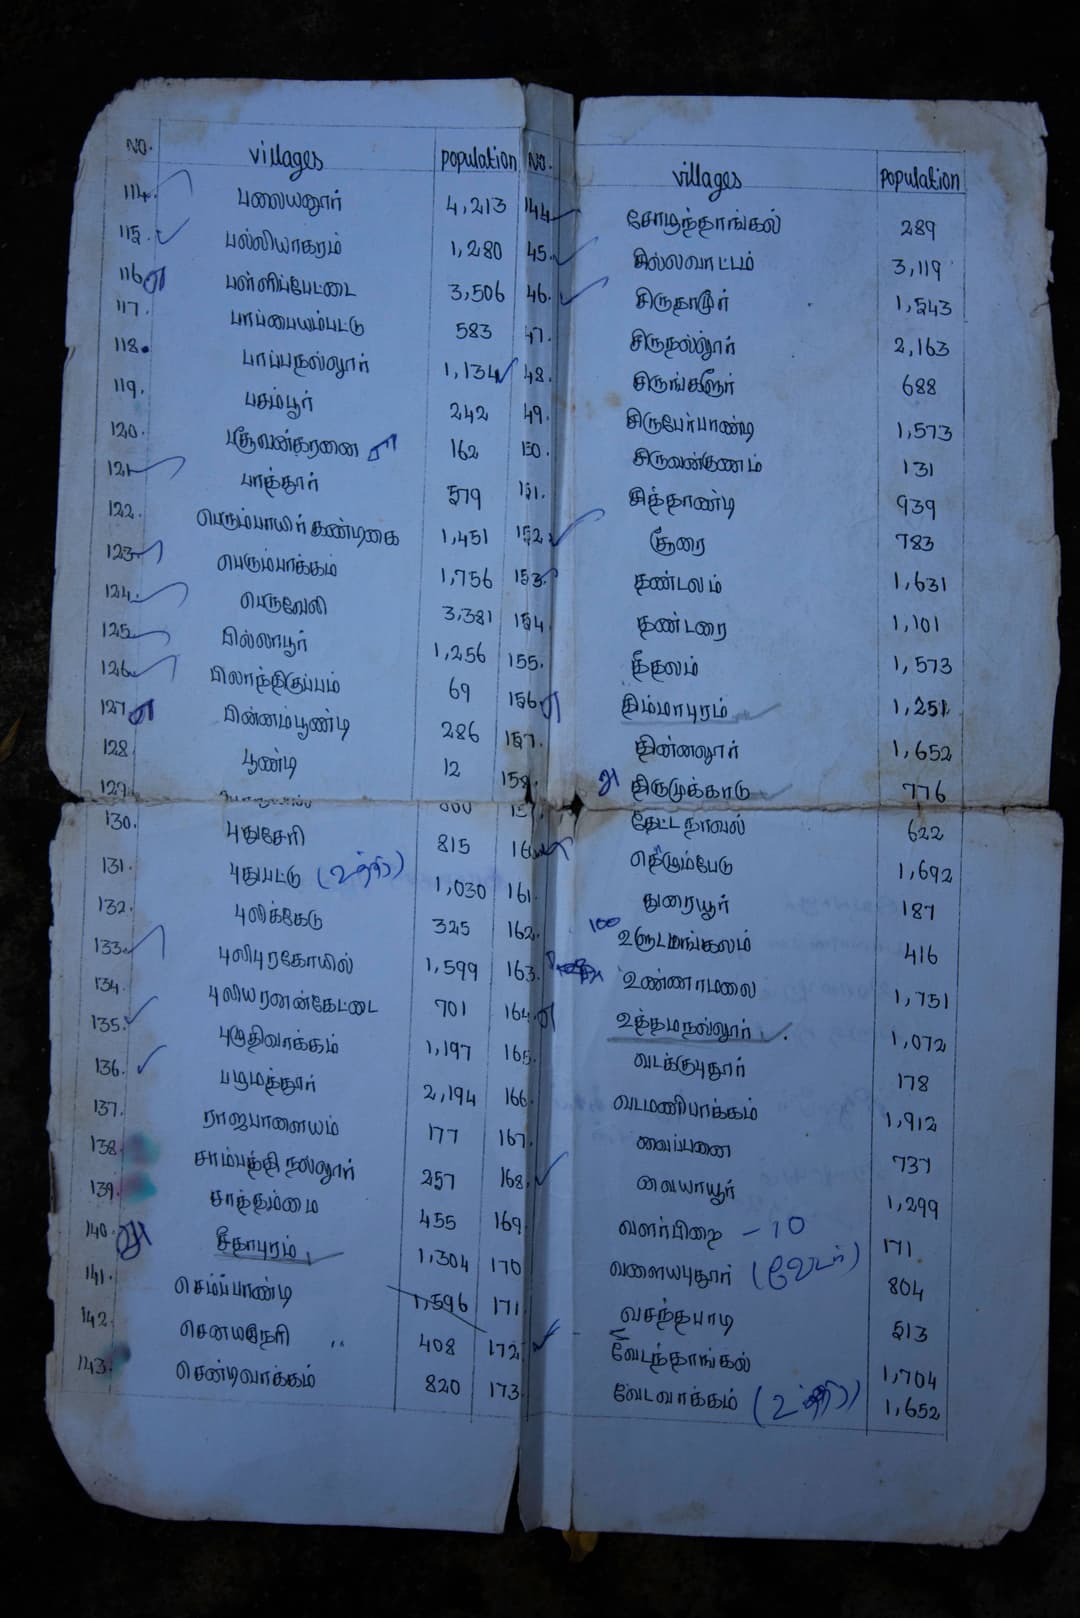 NO. villages population
114. பலையனூர் 4,213
115. பல்லியாகரம் 1,280
116 பள்ளிப்பேட்டை 3,506
117. பாப்பையம்பட்டு 583
118. பாப்பநல்லூர் 1,134
119. பசும்பூர் 242
120. பருவன்கரணை 162
121 பாத்தூர் 579
122. பெரும்பாயிர் கண்டிகை 1,451
123 பெரும்பாக்கம் 1,756
124. பெருவேலி 3,381
125 பில்லாபூர் 1,256
126 பிலாந்திகுப்பம் 69
127 பின்னம்பூண்டி 286
128. பூண்டி 12
129.
130. புதுசேரி 815
131. புதுபட்டு (உத்தி) 1,030
132. புலிக்கேடு 325
133. புலிபுரகோயில் 1,599
134. புலியரனன்கேட்டை 701
135. புழுதிவாக்கம் 1,197
136. பழமத்தூர் 2,194
137. ராஜபாளையம் 177
138. சாம்பத்தி நல்லூர் 257
139. சாத்தம்மை 455
140. சீதாபுரம் 1,304
141. செம்ப்பூண்டி 1,596
142. செனயநேரி " 408
143. செண்டிவாக்கம் 820
NO. villages population
144 சோழந்தாங்கல் 289
45. சில்லவாட்டம் 3,119
46. சிருதாமூர் 1,543
47. சிருநல்லூர் 2,163
48. சிருங்களூர் 688
49. சிருபேர்பாண்டி 1,573
150. சிருவண்குணம் 131
151. சித்தாண்டி 939
152 சூரை 783
153. தண்டலம் 1,631
154. தண்டரை 1,101
155. தீதலம் 1,573
156 திம்மாபுரம் 1,251
157. தின்னலூர் 1,652
158. திருமுக்காடு 776
தேட்டநாவல் 622
தெடும்பேடு 1,692
161. துரையூர் 187
162. 100 உளுடமங்கலம் 416
163. உண்ணாமலை 1,751
164. உத்தமநல்லூர் 1,072
165. வடக்குபுதூர் 178
166. வடமணிபாக்கம் 1,912
167. வைப்பணை 737
168. வையாயூர் 1,299
169. வளர்பிறை - 10 171
170 வளையபுதூர் (வேடர்) 804
171 வசந்தபாடி 513
172 வேடந்தாங்கல் 1,704
173. வேடவாக்கம் (உத்தி) 1,652